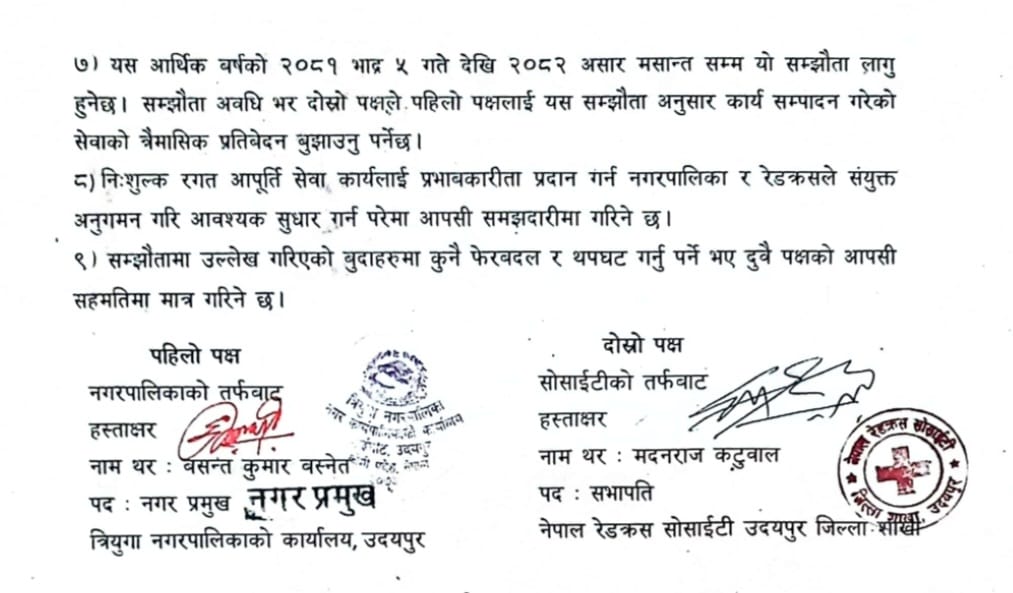 ७) यस आर्थिक वर्षको २०८१ भाद्र ५ गते देखि २०८२ असार मसान्त सम्म यो सम्झौता लागु
हुनेछ। सम्झौता अवधि भर दोस्रो पक्षले पहिलो पक्षलाई यस सम्झौता अनुसार कार्य सम्पादन गरेको
सेवाको त्रैमासिक प्रतिबेदन बुझाउनु पर्नेछ।
८) निःशुल्क रगत आपूर्ति सेवा कार्यलाई प्रभाबकारीता प्रदान गर्न नगरपालिका र रेडक्रसले संयुक्त
अनुगमन गरि आवश्यक सुधार गर्न परेमा आपसी समझदारीमा गरिने छ।
९) सम्झौतामा उल्लेख गरिएको बुदाहरुमा कुनै फेरबदल र थपघट गर्नु पर्ने भए दुवै पक्षको आपसी
सहमतिमा मात्र गरिने छ।
पहिलो पक्ष
नगरपालिकाको तर्फबाट
हस्ताक्षर
नाम थर : बसन्त कुमार बस्नेत
पद : नगर प्रमुख नगर प्रमुख
त्रियुगा नगरपालिकाको कार्यालय, उदयपुर
त्रियुगा नगरपालिका
नगर कार्यपालिकाको कार्यालय
उदयपुर
दोस्रो पक्ष
सोसाईटीको तर्फबाट
हस्ताक्षर
नाम थर : मदनराज कटुवाल
पद : सभापति
नेपाल रेडक्रस सोसाईटी उदयपुर जिल्ला साखा
नेपाल रेडक्रस सोसाईटी
जिल्ला शाखा, उदयपुर